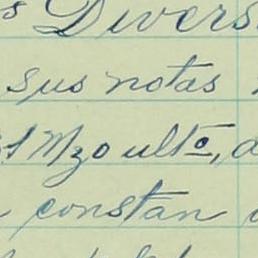 s Divers
sus notas
Mzo ulto, d
constan